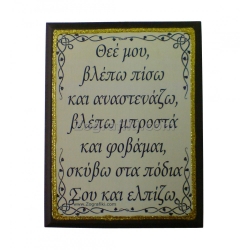 Θεέ μου,
βλέπω πίσω
και αναστενάζω,
βλέπω μπροστά
και φοβάμαι,
σκύβω στα πόδια
Σου και ελπίζω
www.Zografiki.com